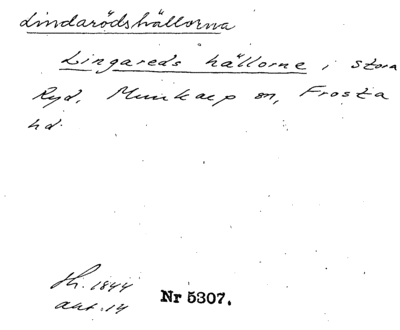 Lindarödshällorna
Lingareds hällorne i Stora
Ryd, Munkarp sn, Frosta
hd.
Lh. 1844
akt. 14
Nr 5307.